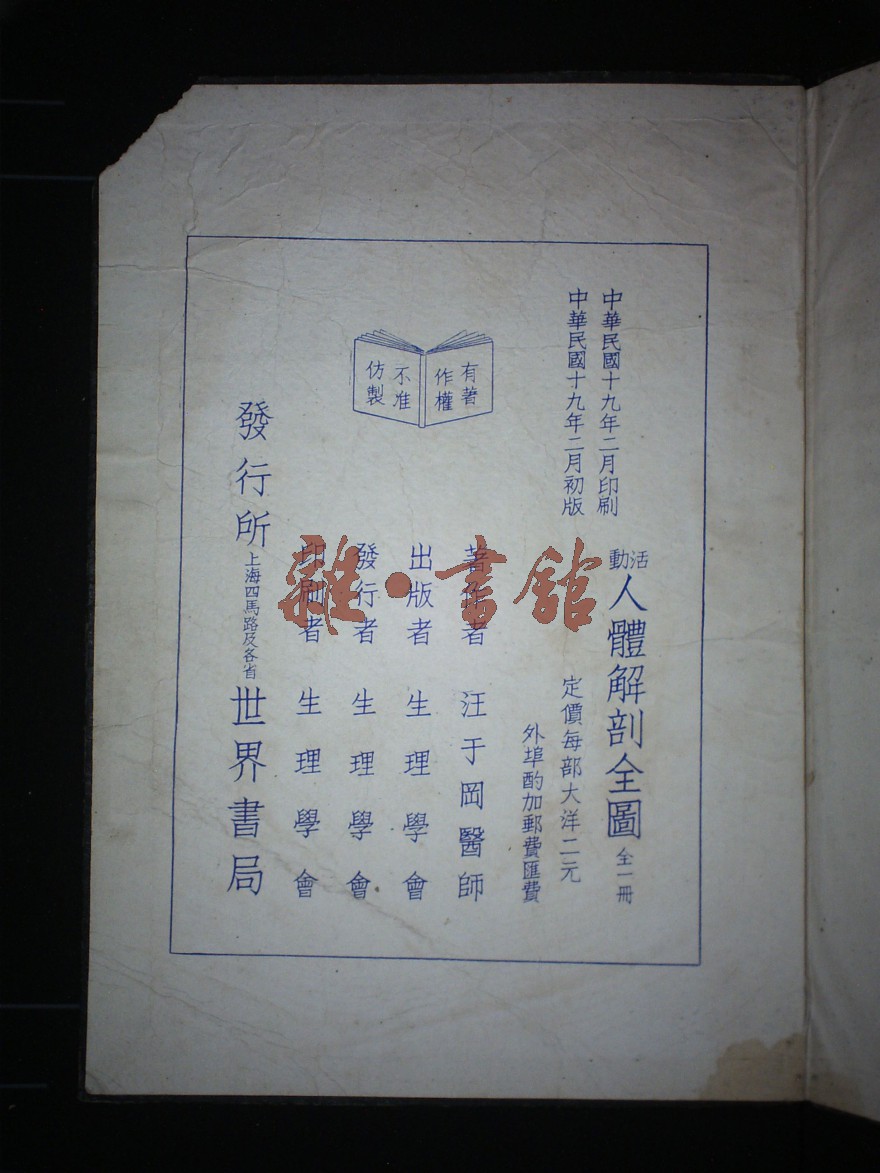 中華民國十九年二月印刷
中華民國十九年二月初版
活動人體解剖全圖 全一冊
定價每部大洋二元
外埠酌加郵費匯費
有著作權
不准仿製
著作者 汪于岡醫師
出版者 生理學會
發行者 生理學會
印刷者 生理學會
發行所 上海四馬路及各省 世界書局
雜·書館